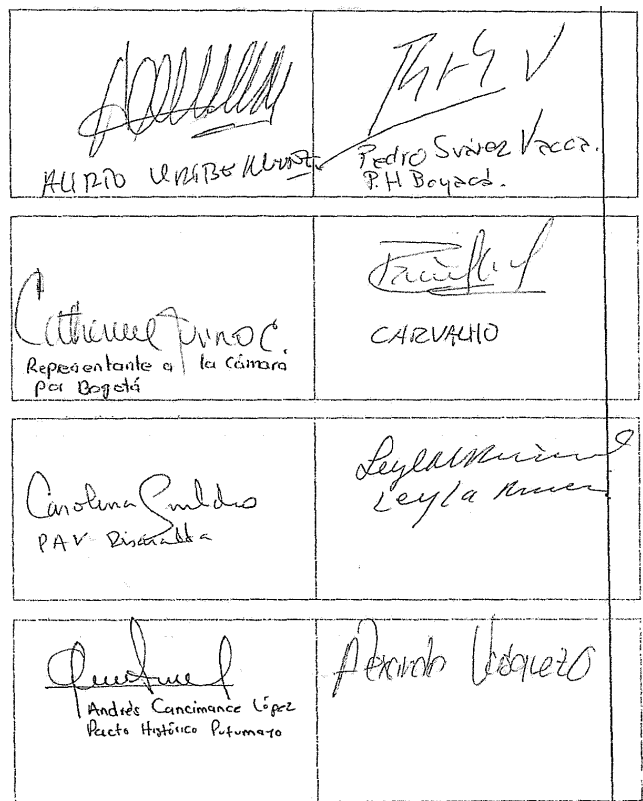 ALIRIO URIBE MUÑOZ
Pedro Suárez Vacca.
P.H Boyacá.
Catherine Juvinao C.
Representante a la Cámara
por Bogotá
CARVALHO
Carolina Giraldo
PAV Risaralda
Leyla
Andrés Cancimance López
Pacto Histórico Putumayo
Alexandra Vásquez O